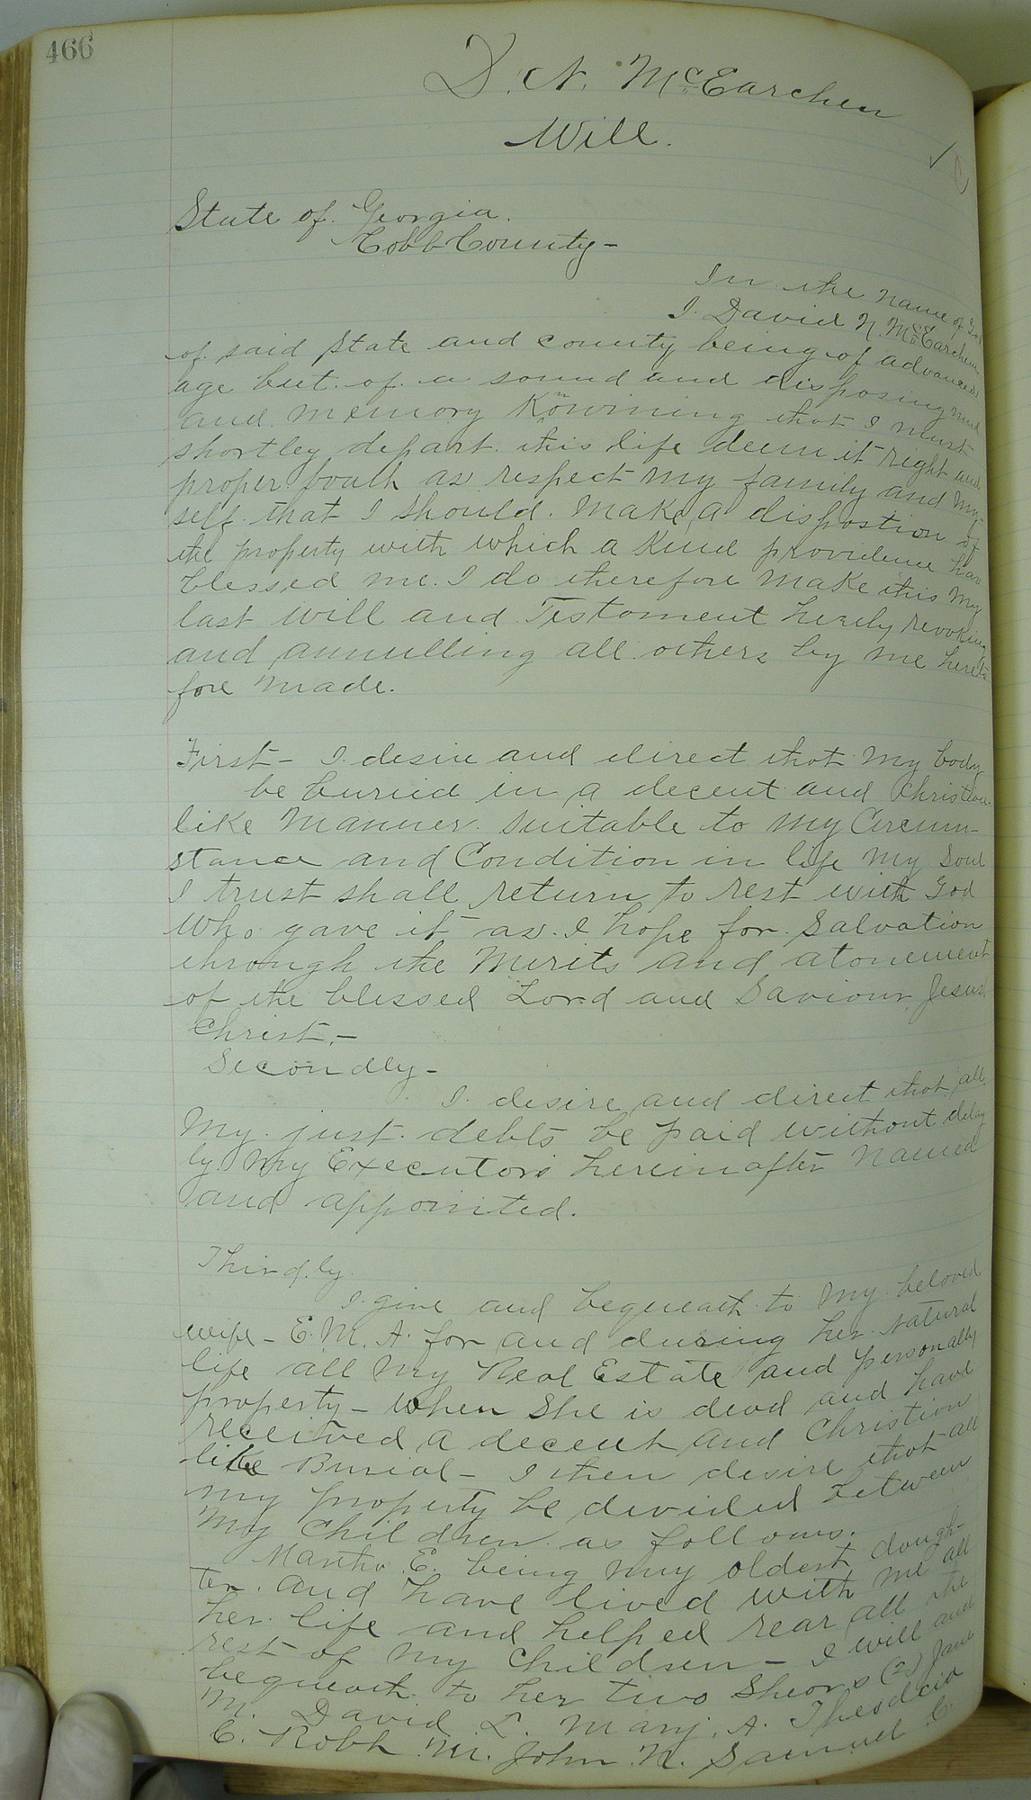 466
D. N. McEarchen
Will.
State of Georgia.
Cobb County-
In the name of God
I. David N. McEarchen
of said State and county being of advanced
age but of a sound and disposing mind
and memory Konwining that I must
shortley depart this life deem it right and
proper bouth as respect my family and my-
self that I should. Make a dispostion of
the property with which a Kind providence has
blessed me. I do therefore make this my
last will and Testament hereby revoking
and annulling all others by me hereto
fore made.
First- I desire and direct that my body
be buried in a decent and Christian
like manner suitable to my Circum-
stance and Condition in life my soul
I trust shall return to rest with God
who gave it as I hope for Salvation
through the Merits and atonement
of the blessed Lord and Saviour Jesus
Christ.-
Secondly-
I. desire and direct that all
My just debts be paid without delay
by my Executors hereinafter named
and appointed.
Thirdly
I give and bequeath to my beloved
wife- E. M. A. for and during her natural
life all my Real Estate and personally
property- when she is dead and have
received a decent and Christion
like Burial- I then desire that all
my property be divided between
my children as follows.
Martha E. being my oldest dough-
ter and have lived with me all
her life and helped rear all the
rest of my children- I will and
bequeath to her two Shears (2) Jane
M. David L. Mary. A. Theodcia
C. Robh M. John N. Samuel C.